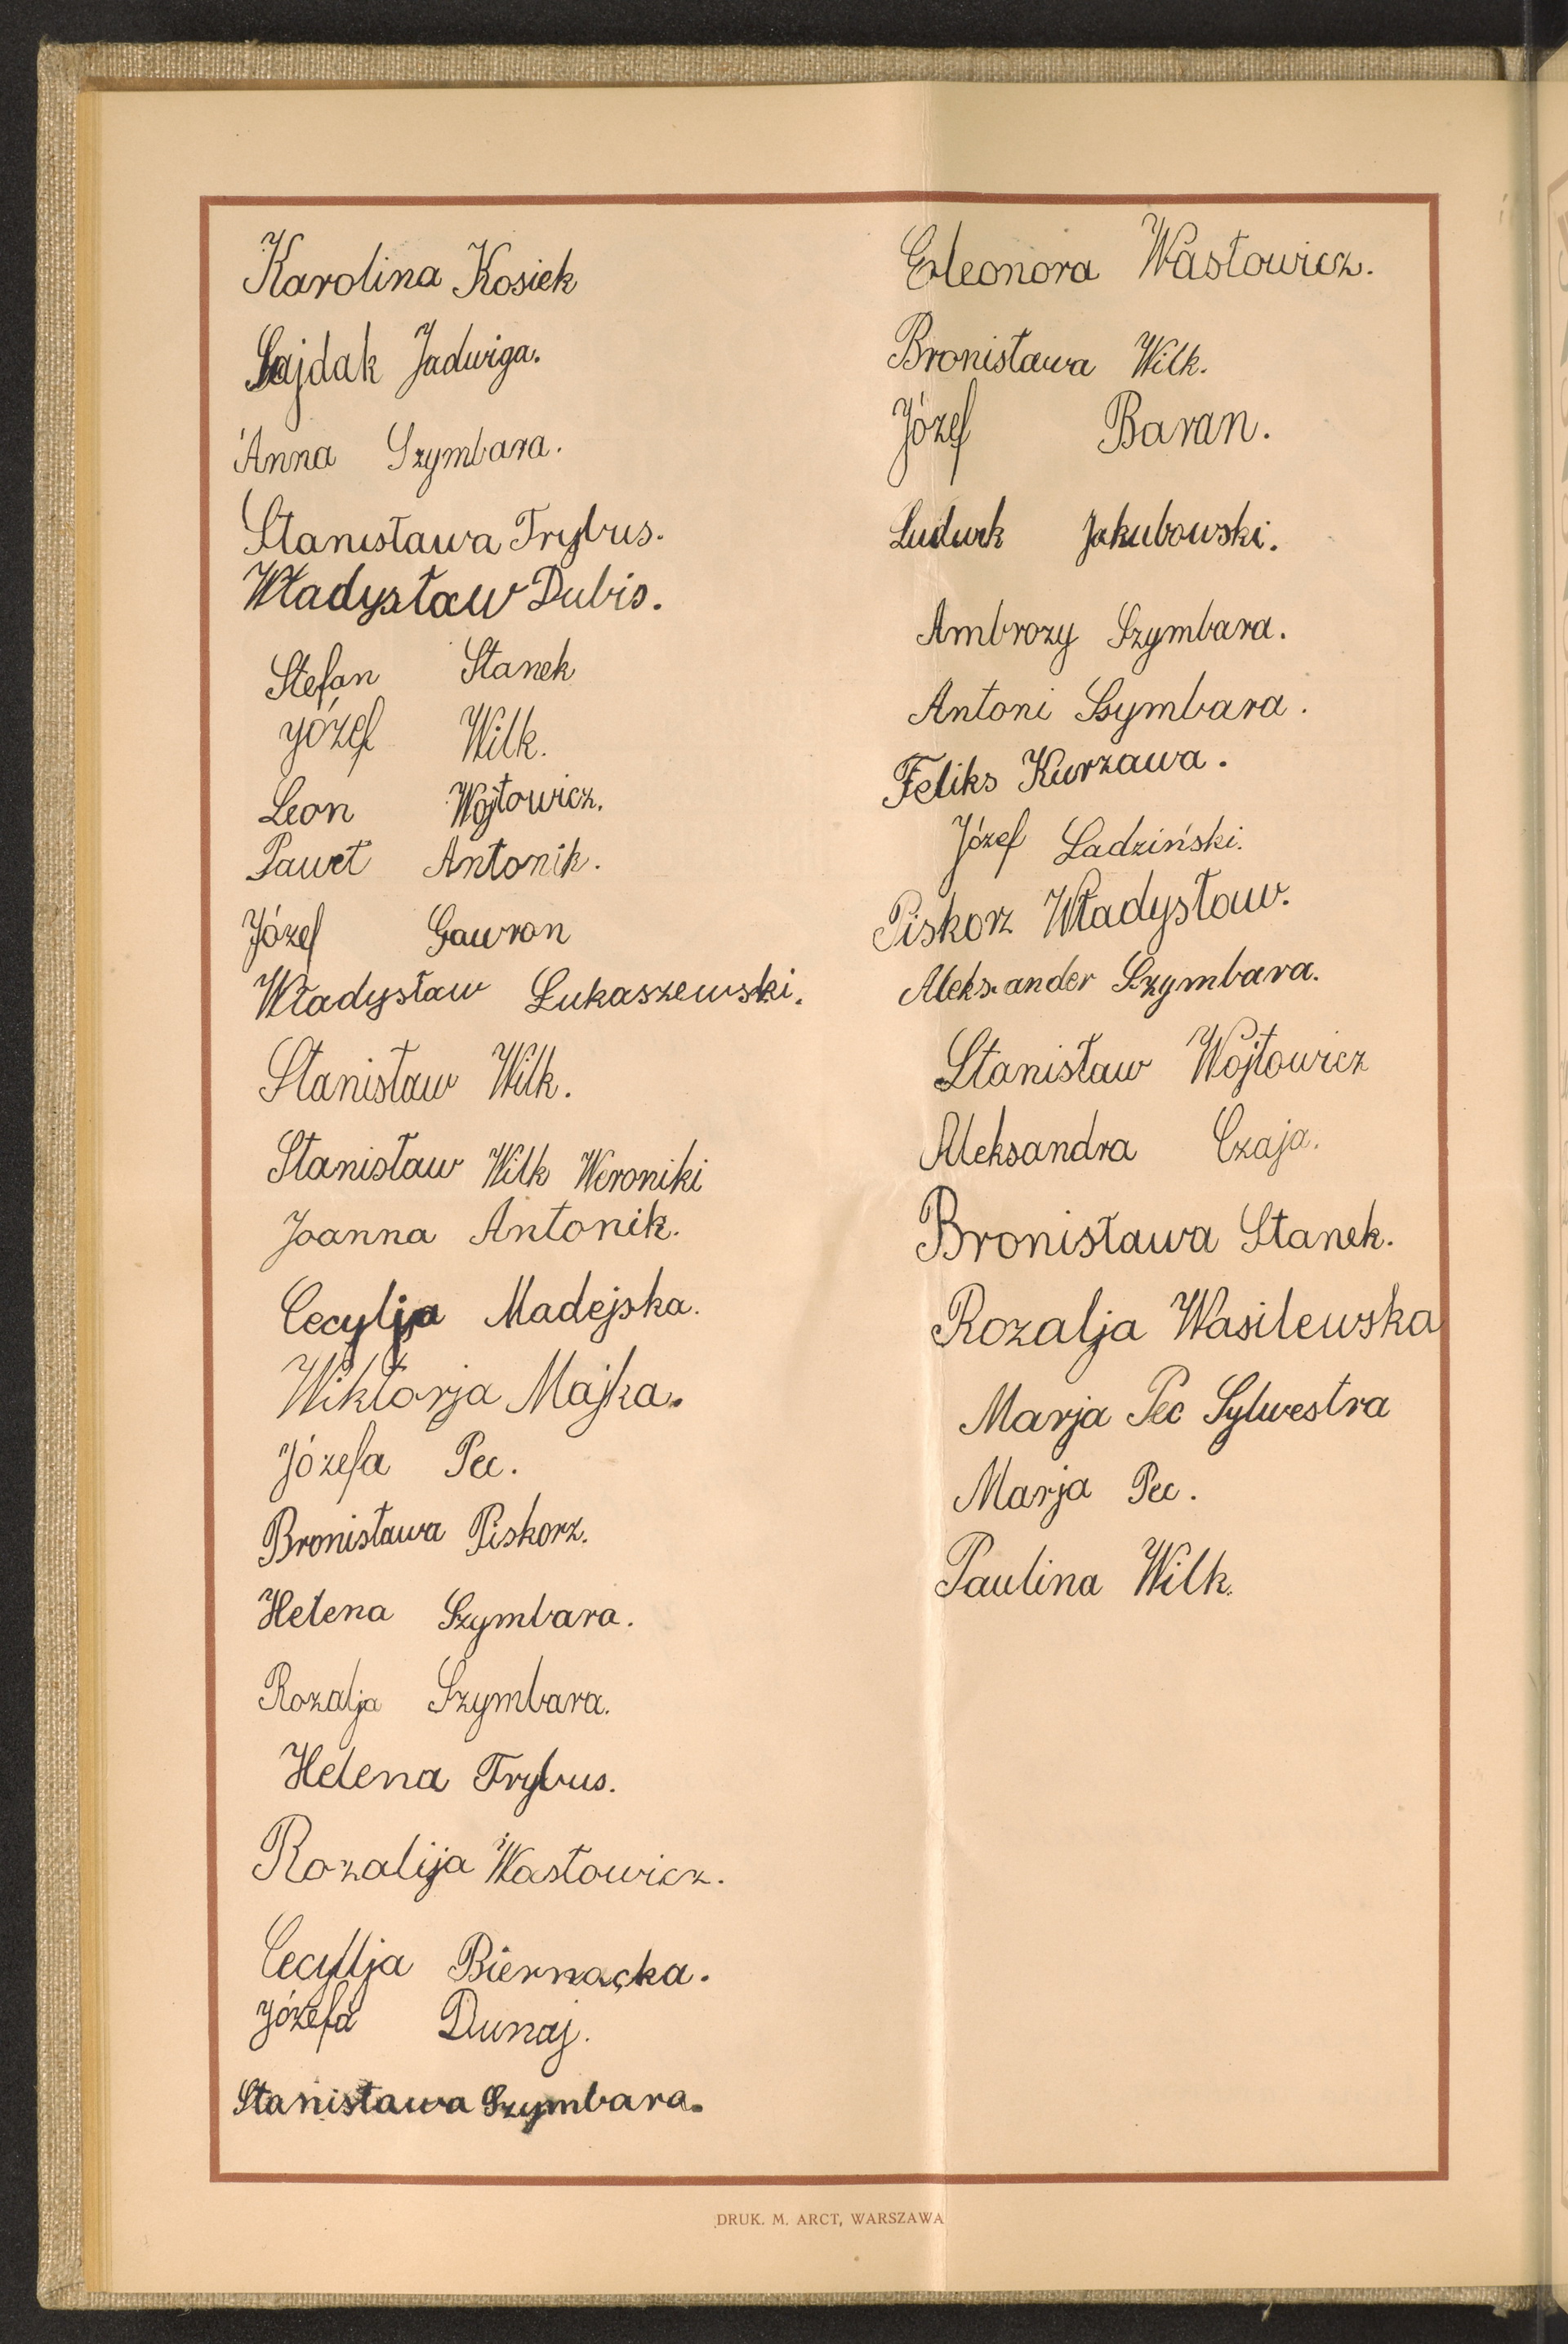 Karolina Kosiek
Sajdak Jadwiga.
Anna Szymbara.
Stanisława Trybus.
Władysław Dubis.
Stefan Stanek
Józef Wilk.
Leon Wojtowicz.
Paweł Antonik.
Józef Gawron
Władysław Łukaszewski.
Stanisław Wilk.
Stanisław Wilk Weroniki
Joanna Antonik.
Cecylja Madejska.
Wiktorja Majka.
Józefa Pec.
Bronisława Piskorz.
Helena Szymbara.
Rozalja Szymbara.
Helena Trybus.
Rozalija Wasłowicz.
Cecylja Biernacka.
Józefa Dunaj.
Stanisława Szymbara.
Eleonora Wasłowicz.
Bronisława Wilk.
Józef Baran.
Ludwik Jakubowski.
Ambrozy Szymbara.
Antoni Szymbara.
Feliks Kurzawa.
Józef Ladziński.
Piskorz Władysław.
Aleksander Szymbara.
Stanisław Wojtowicz
Aleksandra Czaja.
Bronisława Stanek.
Rozalja Wasilewska
Marja Pec Sylwestra
Marja Pec.
Paulina Wilk.
DRUK. M. ARCT, WARSZAWA